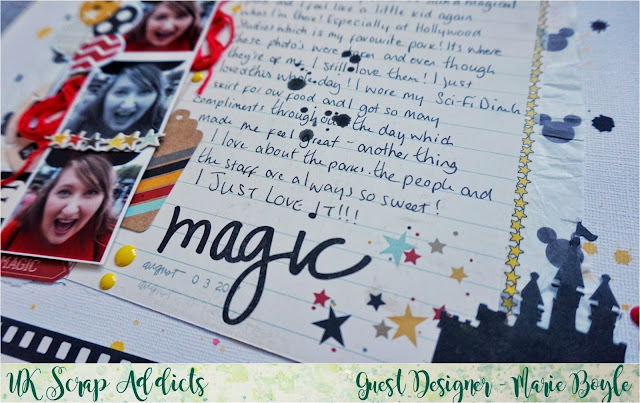 and I feel like a little kid again
what I'm there! Especially at Hollywood
Studios which is my favourite park! It's where
these photo's were taken and even though
they're of me, I still love them! I just
loved this whole day! I wore my Sci-Fi Dineh
skirt for our food and I got so many
compliments throughout the day which
made me feel great - another thing
I love about the parks. the people and
the staff are always so sweet!
I JUST LOVE IT!!!
magic
august 03 20
MAGIC
UK Scrap Addicts
Guest Designer - Marie Boyle